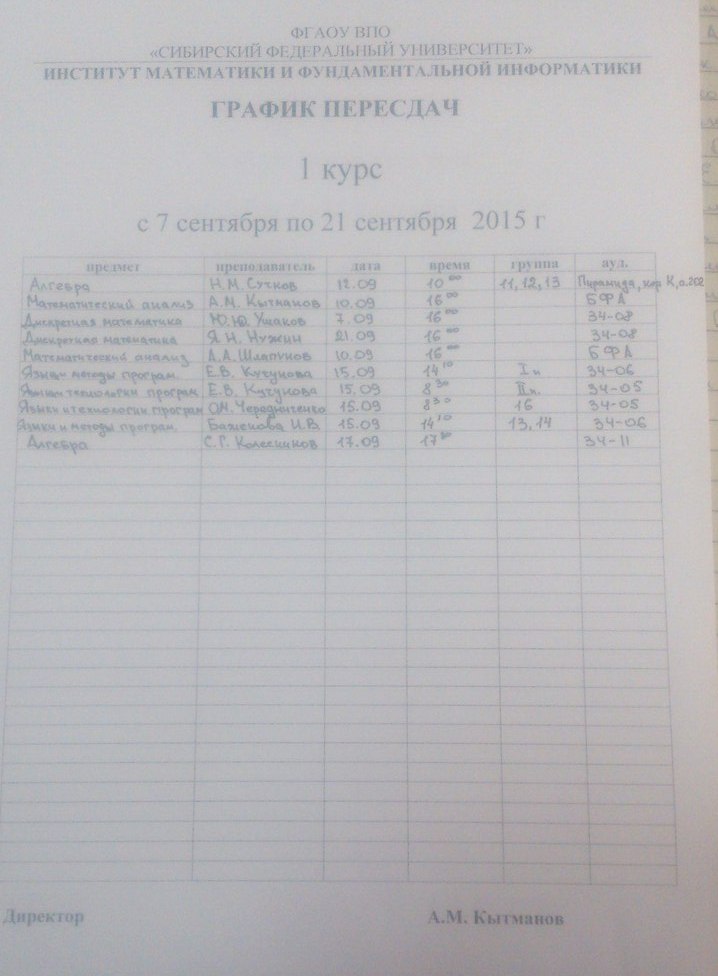 ФГАОУ ВПО
«СИБИРСКИЙ ФЕДЕРАЛЬНЫЙ УНИВЕРСИТЕТ»
ИНСТИТУТ МАТЕМАТИКИ И ФУНДАМЕНТАЛЬНОЙ ИНФОРМАТИКИ
ГРАФИК ПЕРЕСДАЧ
1 курс
с 7 сентября по 21 сентября 2015 г
предмет преподаватель дата время группа ауд.
Алгебра Н.М. Сучков 12.09 10 00 11, 12, 13 Пирамида, кор К, а.202
Математический анализ А.М. Кытманов 10.09 16 00 БФА
Дискретная математика Ю.Ю. Ушаков 7.09 16 00 34-08
Дискретная математика Я.Н. Нужин 21.09 16 00 34-08
Математический анализ А.А. Шлапунов 10.09 16 00 БФА
Языки и методы програм. Е.В. Кучунова 15.09 14 10 I н 34-06
Языки и технологии програм Е.В. Кучунова 15.09 8 30 II н. 34-05
Языки и технологии програм О.М. Чередниченко 15.09 8 30 16 34-05
Языки и методы програм. Баженова И.В. 15.09 14 10 13, 14 34-06
Алгебра С.Г. Колесников 17.09 17 34-11
Директор А.М. Кытманов